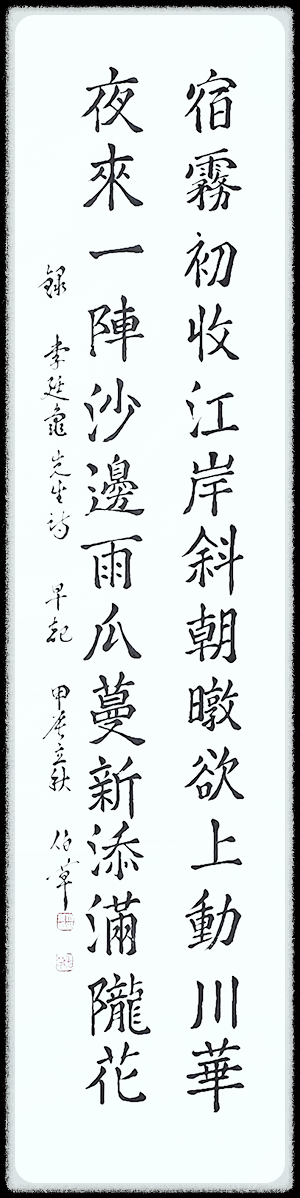 宿霧初收江岸斜朝暾欲上動川華
夜來一陣沙邊雨瓜蔓新添滿隴花
錄 李延龜先生詩 早起 甲辰立秋 伯草